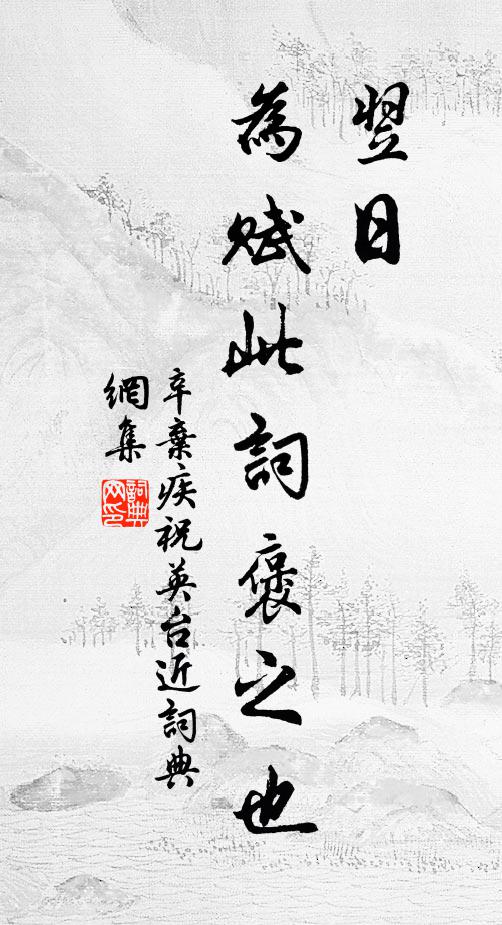 翌日
為賦此詞褒之也
辛棄疾祝英台近詞典
網集
詞典
网印